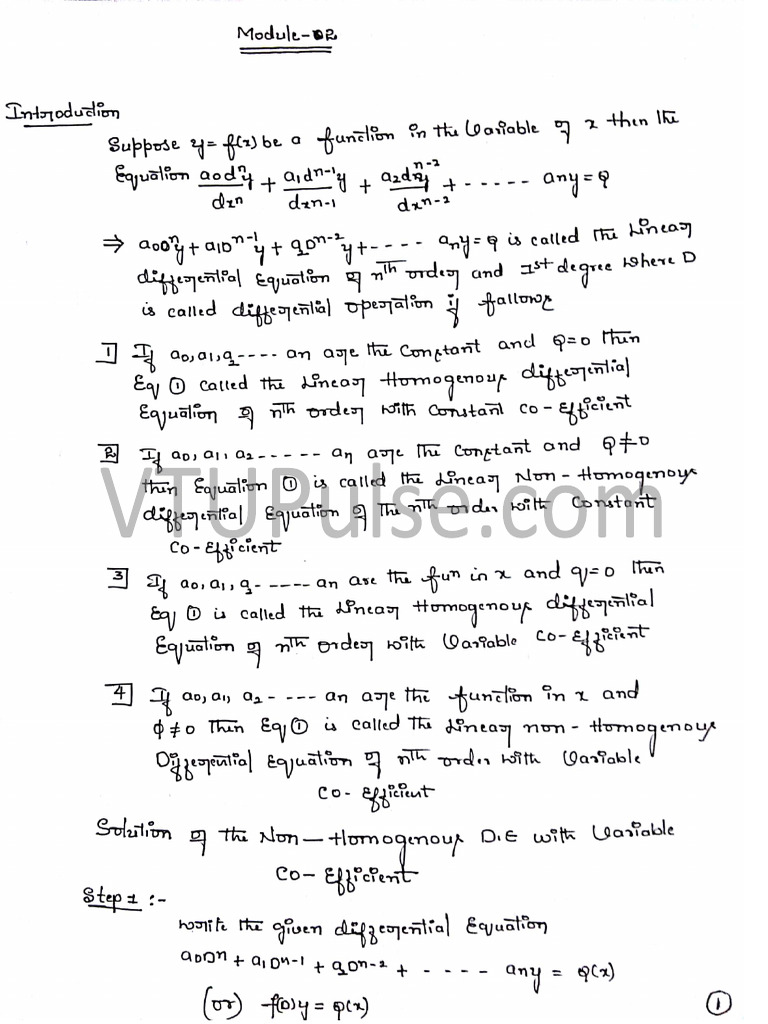 Module-02
Introduction
Suppose y = f(x) be a function in the Variable of x then the
Equation a0dⁿy/dxⁿ + a1dⁿ⁻¹y/dxn-1 + a2dⁿ⁻²y/dxⁿ⁻² + ----- any = φ
⇒ a0Dⁿy + a1Dⁿ⁻¹y + a2Dⁿ⁻²y + ---- any = φ is called the Linear
differential Equation of nth order and 1st degree where D
is called differential operation if fallows
1 If a0, a1, a2 ---- an are the Constant and φ=0 then
Eq ① called the Linear Homogenous differential
Equation of nth order with constant co-efficient
2 If a0, a1, a2 ----- an are the Constant and φ≠0
then Equation ① is called the Linear Non-Homogenous
differential Equation of the nth order with Constant
co-efficient
VTUPulse.com
3 If a0, a1, a2 ----- an are the fun in x and φ=0 then
Eq ① is called the Linear Homogenous differential
Equation of nth order with Variable co-efficient
4 If a0, a1, a2 ---- an are the function in x and
φ≠0 then Eq ① is called the Linear non-Homogenous
Differential Equation of nth order with Variable
co-efficient
Solution of the Non-Homogenous D.E with Variable
co-efficient
Step 1 :-
write the given differential Equation
a0Dⁿ + a1Dⁿ⁻¹ + a2Dⁿ⁻² + ---- any = φ(x)
(or) f(D)y = φ(x)
①